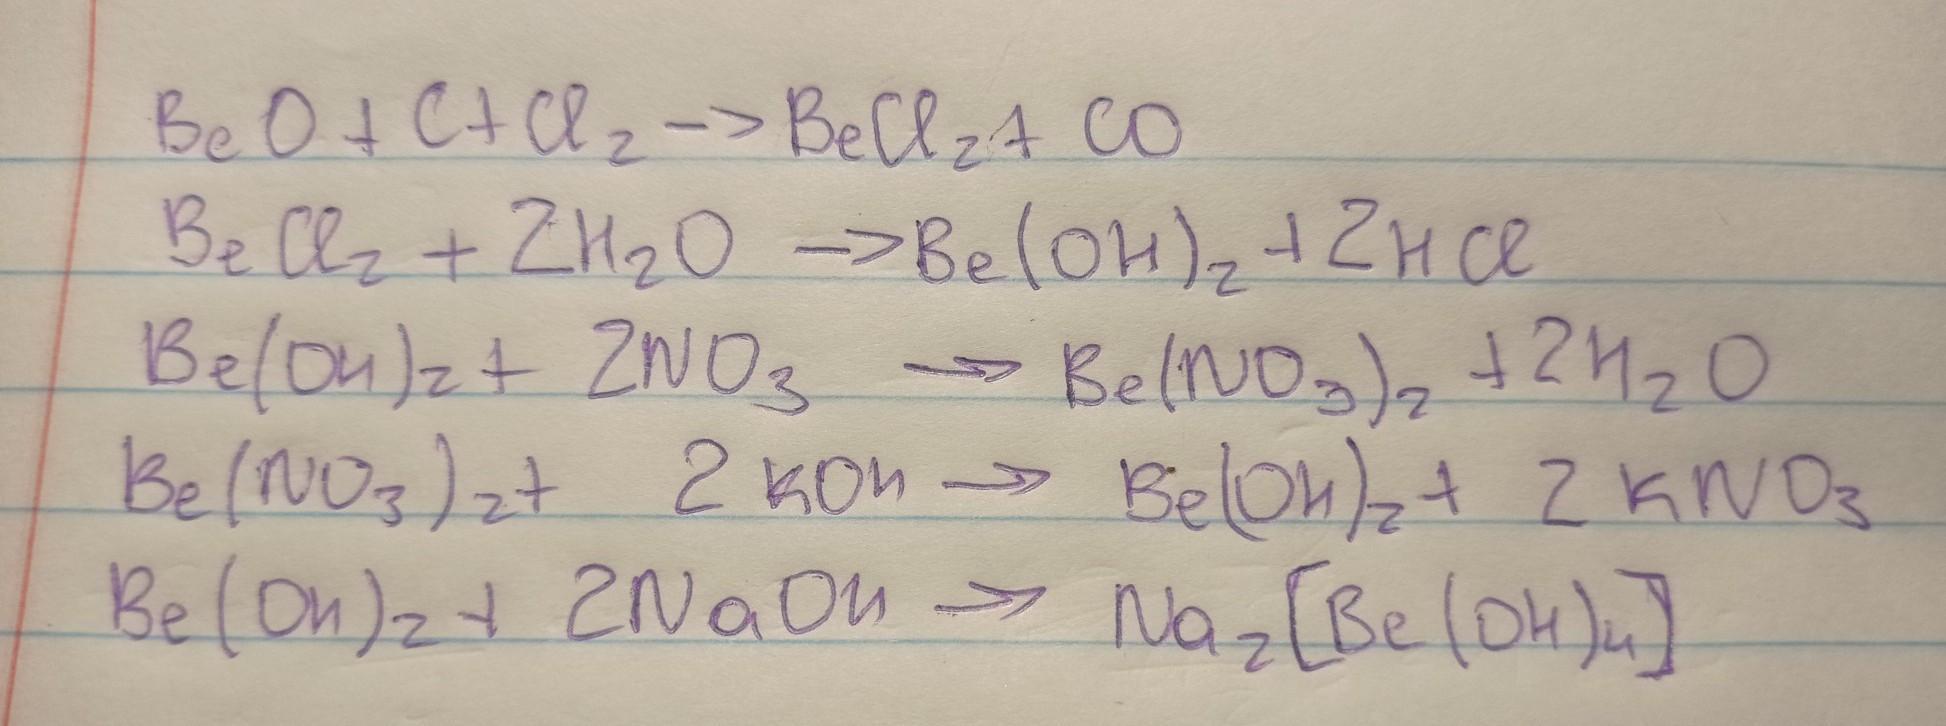 BeO + C + Cl₂ -> BeCl₂ + CO
BeCl₂ + 2H₂O -> Be(OH)₂ + 2HCl
Be(OH)₂ + 2NO₃ -> Be(NO₃)₂ + 2H₂O
Be(NO₃)₂ + 2KOH -> Be(OH)₂ + 2KNO₃
Be(OH)₂ + 2NaOH -> Na₂[Be(OH)₄]